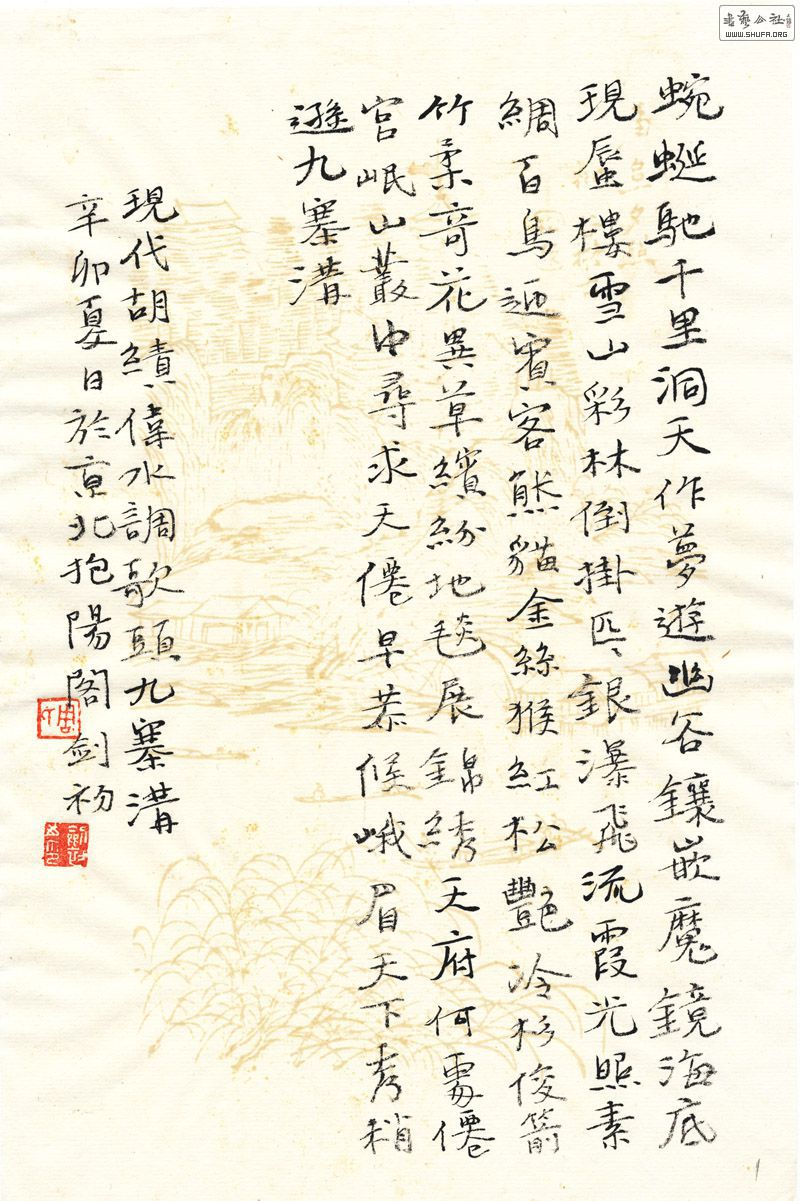 蜿蜒馳千里洞天作夢遊幽谷鑲嵌魔鏡海底
現蜃樓雪山彩林倒掛匹匹銀瀑飛流霞光照素
綢百鳥迎賓客熊貓金絲猴紅松艷冷杉俊箭
竹柔奇花異草繽紛地毯展錦綉天府何處僊
宮岷山叢中尋求天僊早恭候峨眉天下秀稍
遜九寨溝
現代胡績偉水調歌頭九寨溝
辛卯夏日於京北抱陽閣劍初
書藝公社
WWW.SHUFA.ORG
1